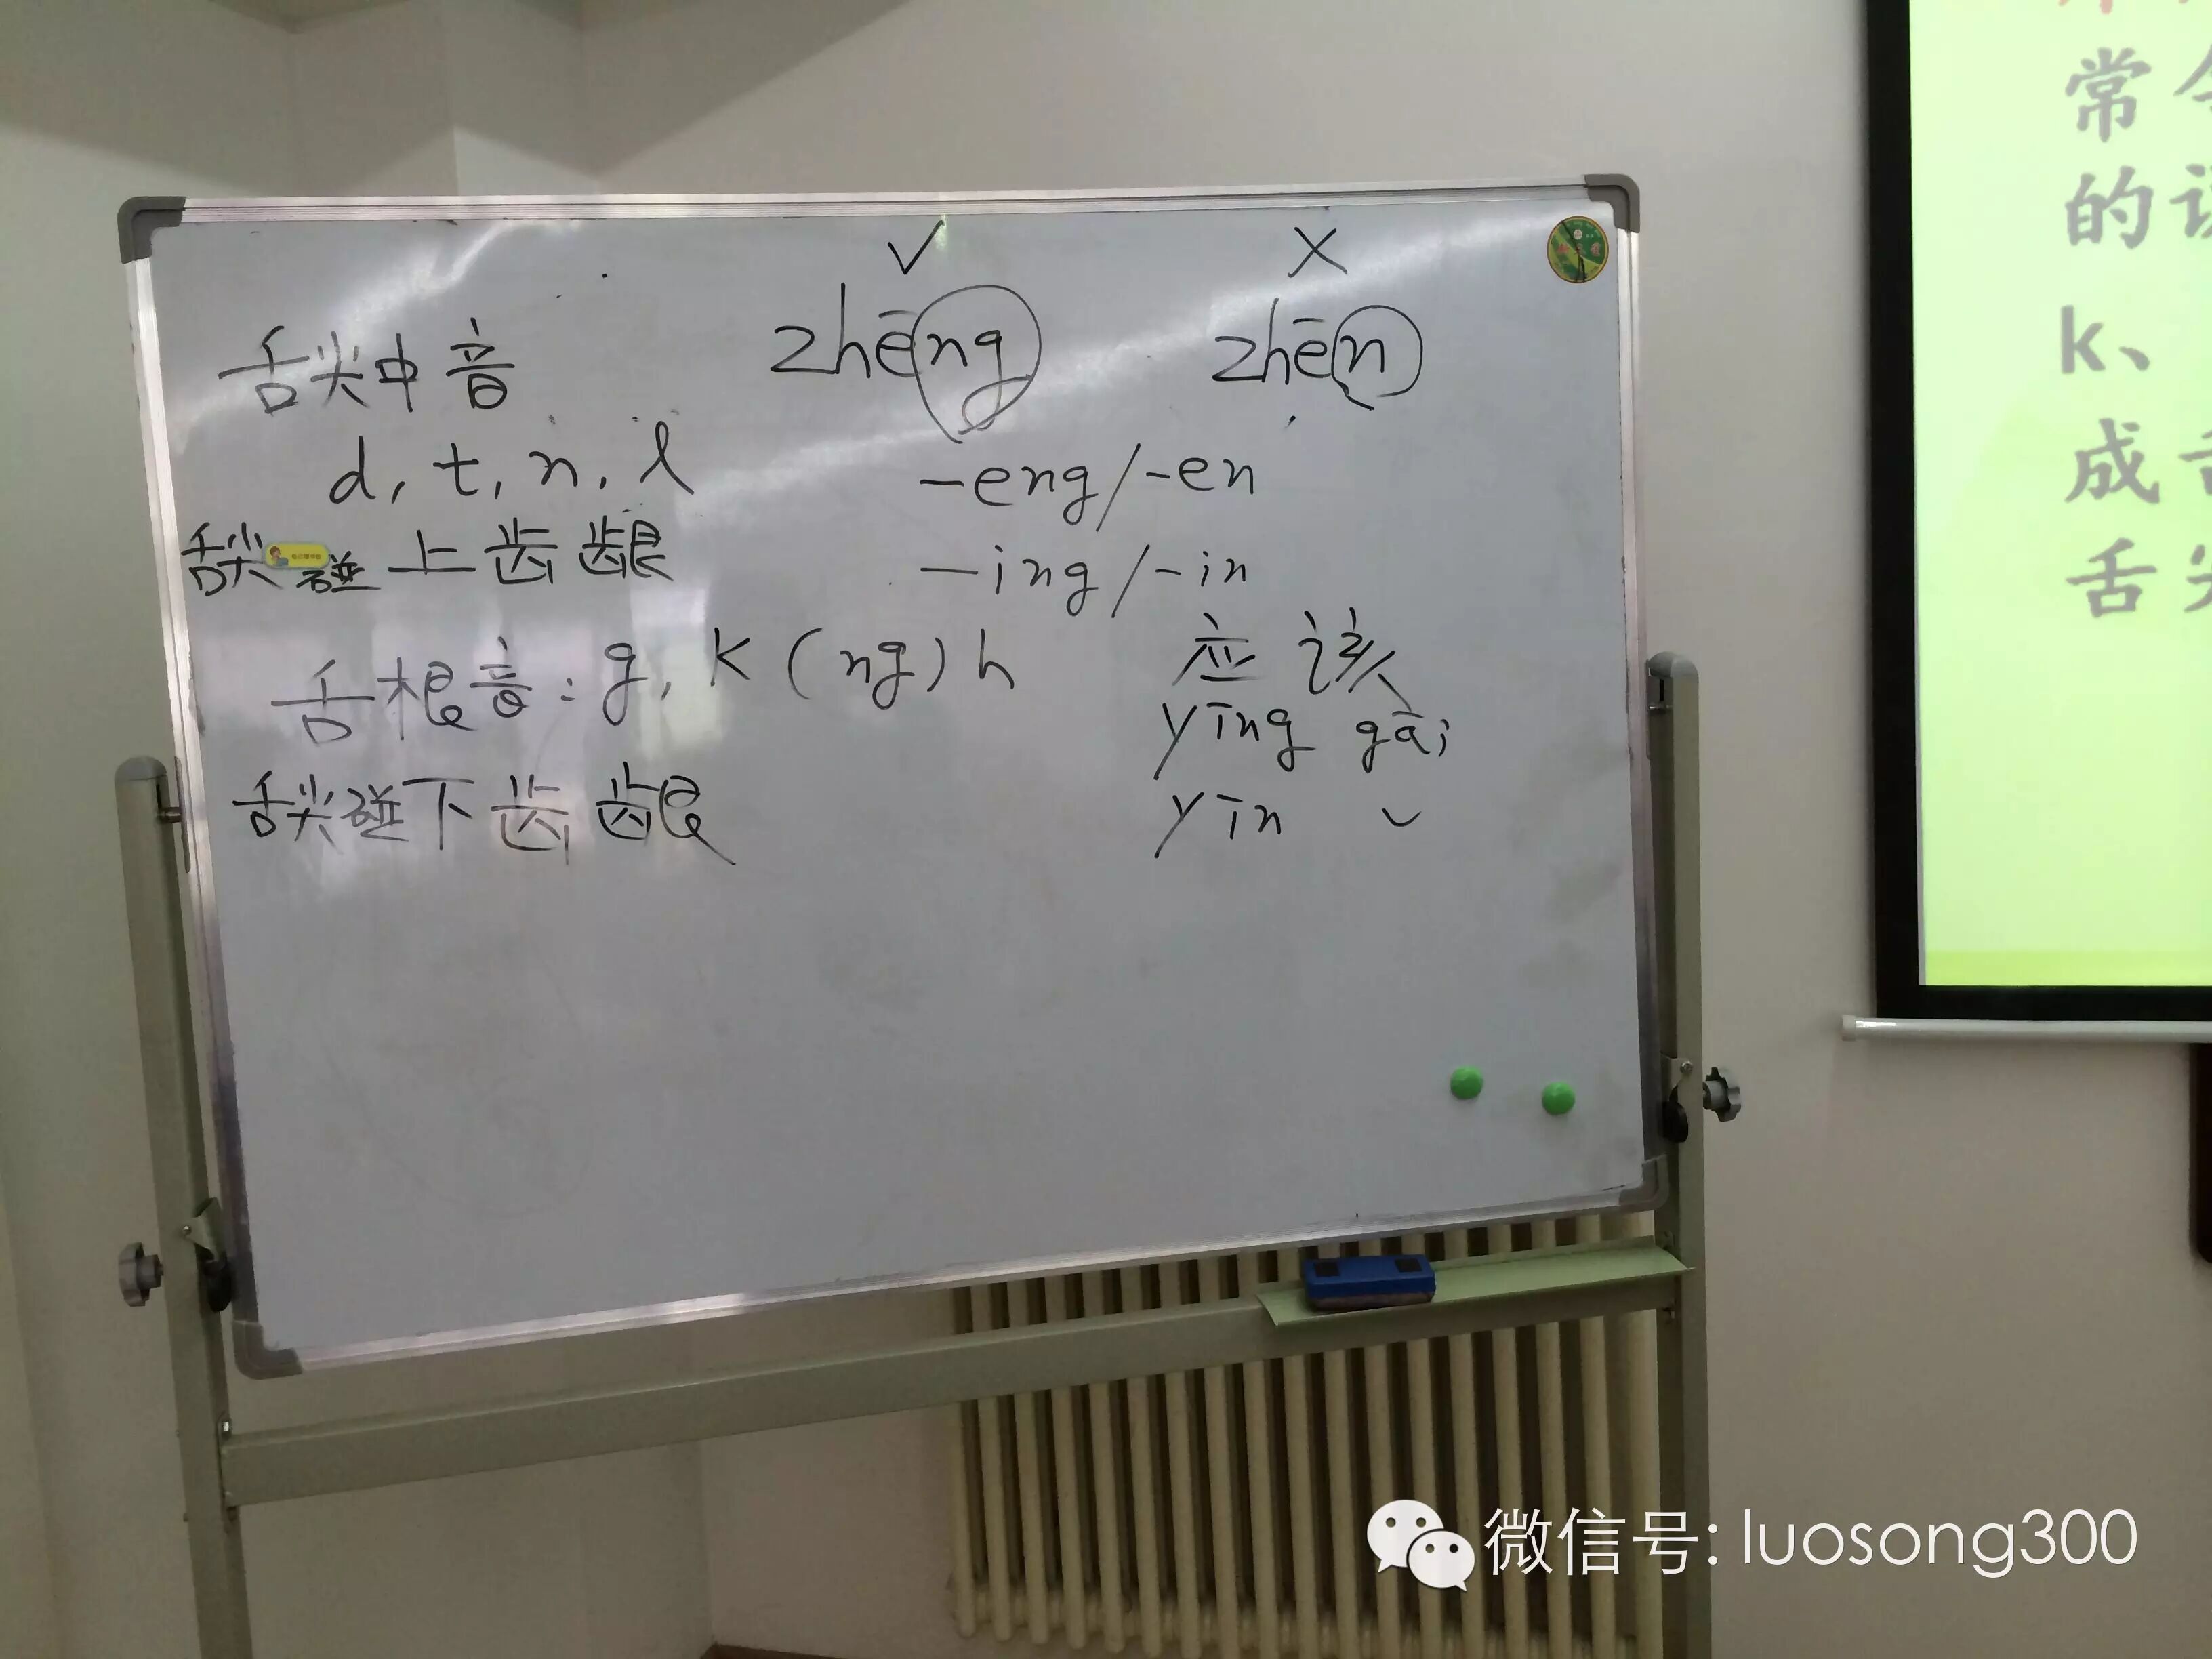 √ ×
舌尖中音
zhēng zhēn
d, t, n, l
-eng/-en
舌尖碰上齿龈
-ing/-in
舌根音: g, k (ng) h
应该
yīng gāi
舌尖碰下齿龈
yīn ˇ
常
的
k、
成
舌尖
微信号: luosong300